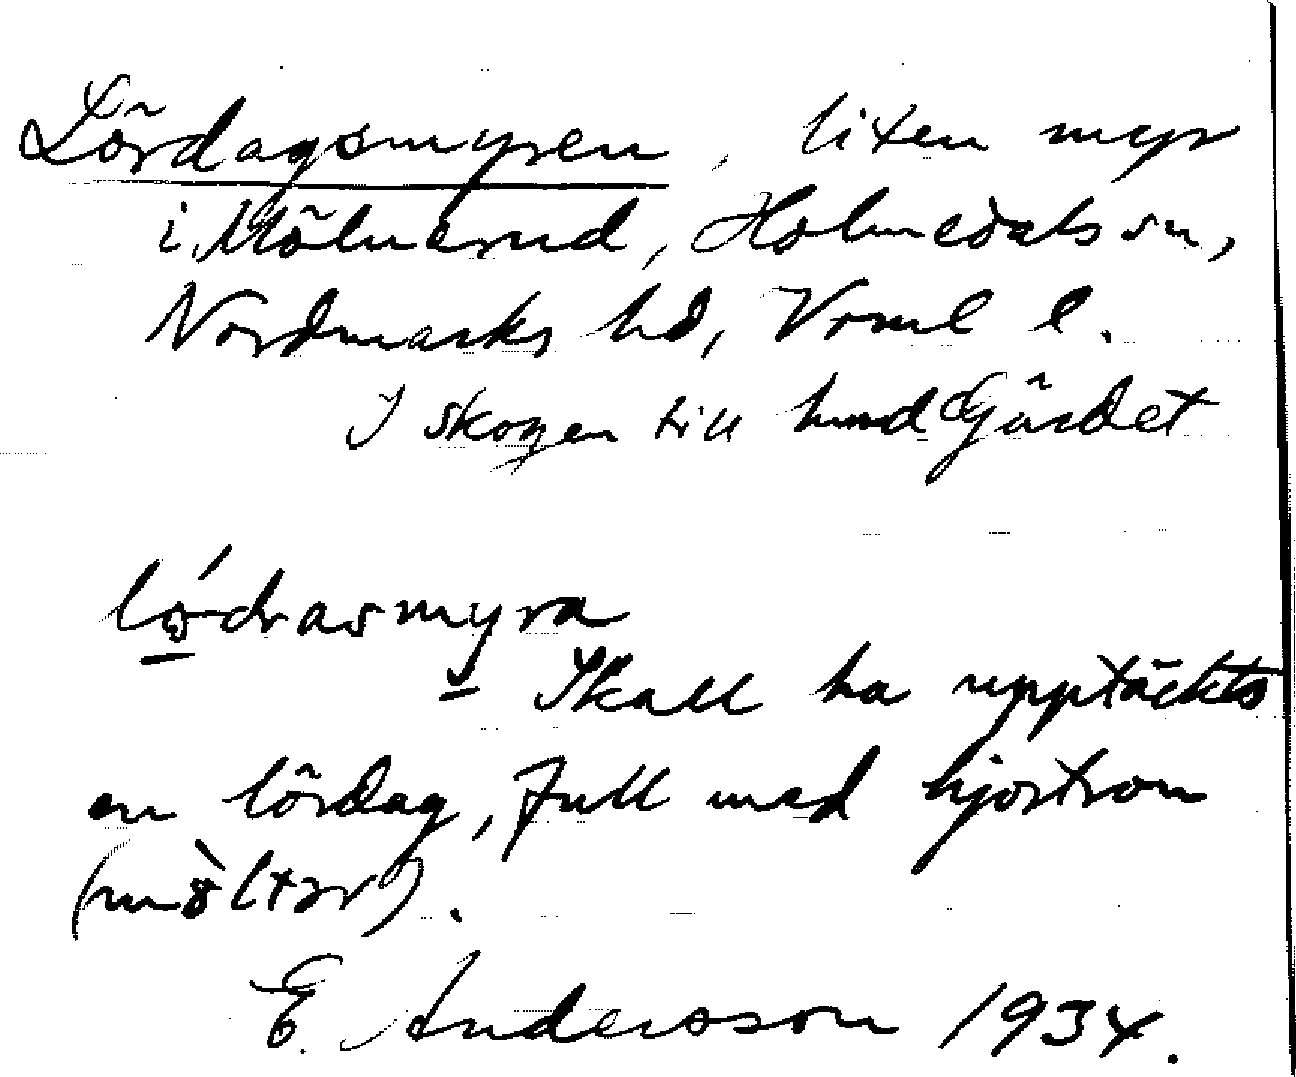 Lördagsmyren, liten myr
i Mölnerud, Holmedals sn,
Nordmarks hd, Vrml l.
I skogen till hmd Gärdet
lǿdrasmyra
Skall ha upptäckts
en lördag, full med hjortron
(mòltər).
E. Andersson 1934.